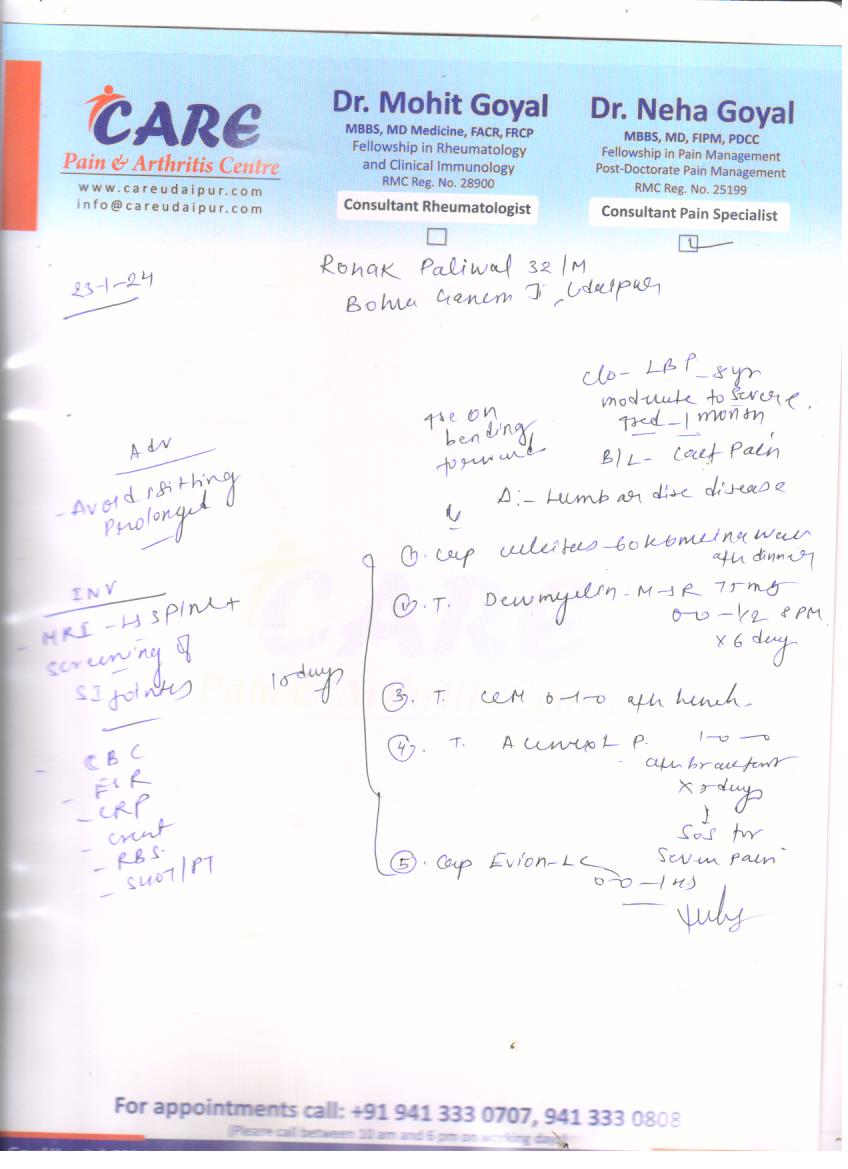 CARE
Pain & Arthritis Centre
www.careudaipur.com
info@careudaipur.com
Dr. Mohit Goyal
MBBS, MD Medicine, FACR, FRCP
Fellowship in Rheumatology
and Clinical Immunology
RMC Reg. No. 28900
Consultant Rheumatologist
Dr. Neha Goyal
MBBS, MD, FIPM, PDCC
Fellowship in Pain Management
Post-Doctorate Pain Management
RMC Reg. No. 25199
Consultant Pain Specialist
23-1-24
Ronak Paliwal 32/M
Bohra Ganesh Ji, Udaipur
c/o - LBP - 8yr
moderate to severe.
- 1 month
B/L - Calf Pain
on
bending
forward
Δ:- Lumbar disc disease
Adv
- Avoid sitting
Prolonged
INV
- MRI - LS Spine +
screening of
SI joints
- CBC
- ESR
- CRP
- creat
- RBS
- SGOT/PT
10 days
1. Cap 60k
after dinner
2. T. - M - SR 75mg
0-0-1/2 8 PM
x 6 days
3. T. CCM 0-1-0 after lunch.
4. T. P. 1-0-0
after breakfast
days
↓
SOS for
Severe pain
5. Cap Evion-LC
0-0-1 HS
For appointments call: +91 941 333 0707, 941 333 0808
(Please call between 10 am and 6 pm on working days)